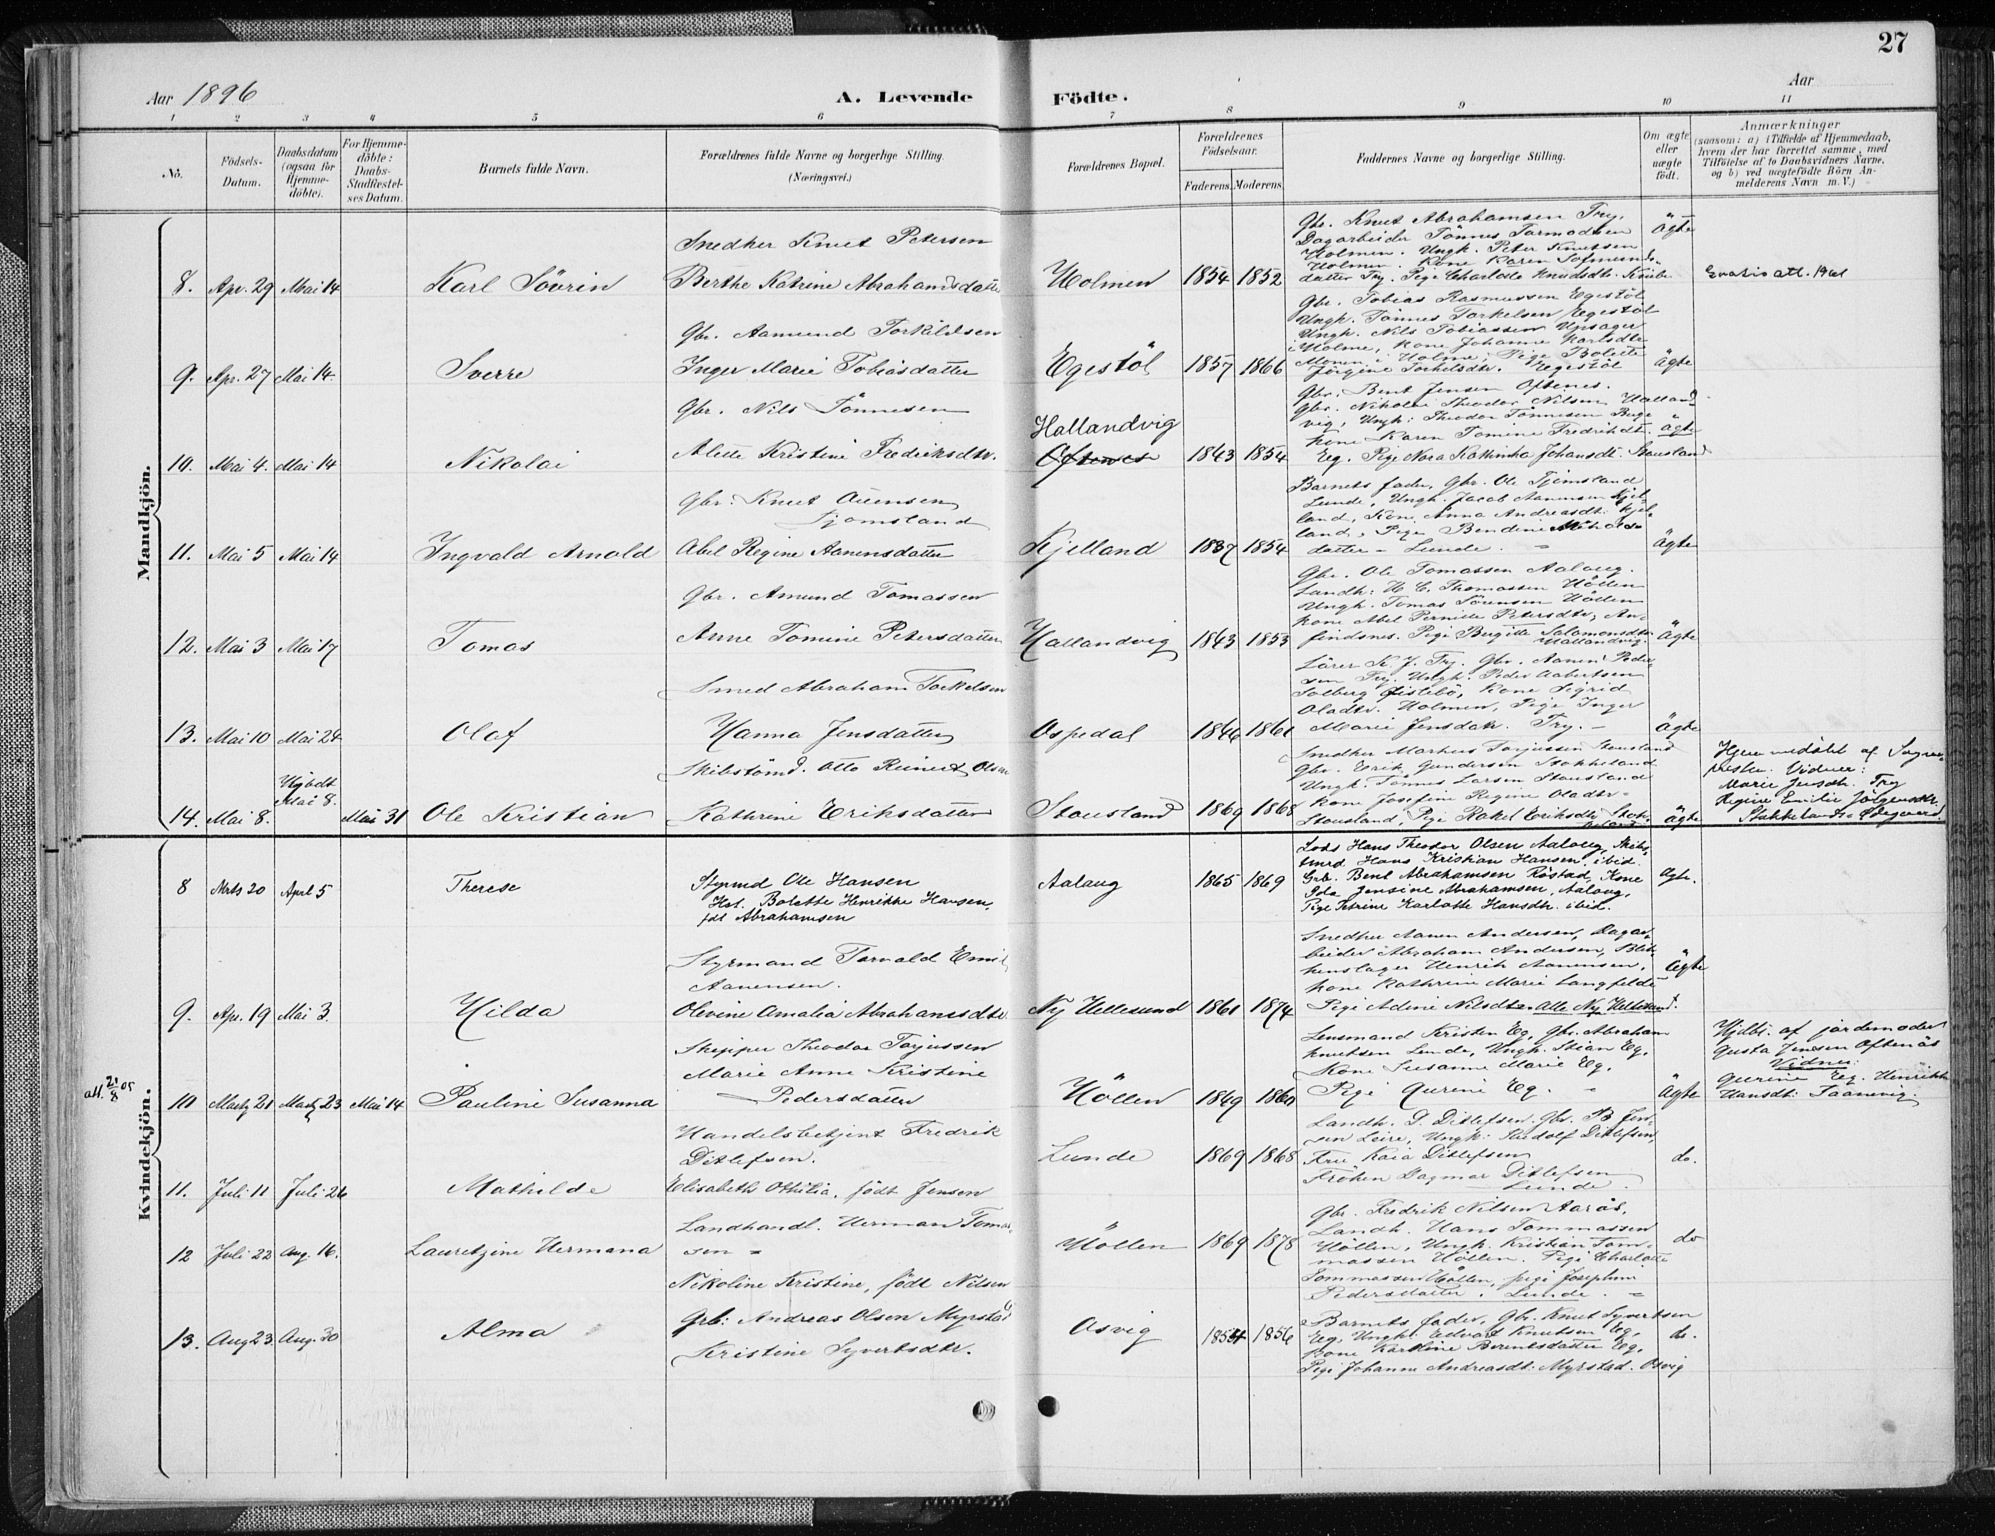 27
Aar 1896
A. Levende Födte.
Aar
1 2 3 4 5 6 7 8 9 10 11
No.
Födsels-Datum.
Daabsdatum (ogsaa for Hjemmedöbte).
For Hjemmedöbte: Daabs-Stadfæstelses Datum.
Barnets fulde Navn.
Forældrenes fulde Navne og borgerlige Stilling. (Næringsvei.)
Forældrenes Bopæl.
Forældrenes Födselsaar.
Faderens. Moderens.
Faddernes Navne og borgerlige Stilling.
Om ægte eller uægte födt.
Anmærkninger
(saasom: a) i Tilfælde af Hjemmedaab, hvem der har forrettet samme, med Tilföielse af to Daabsvidners Navne. og b) ved uægtefödte Börn Anmelderens Navn m. V.)
Mandkjön.
8. Apr. 29 Mai 14 Karl Sövrin
Snedker Knut Petersen
Berthe Katrine Abrahamsdatter
Holmen 1854 1852
Gbr. Knut Abrahamsen Try,
Dagarbeider Tönnes Tarmodsen
Holmen. Ungk. Peter Knutsen
Holmen. Kone Karen
datter Try. Pige Charlotte Knudsdtr.
Ägte
att. 1961
9. Apr. 27 Mai 14. Sverre
Gbr. Aamund Torkildsen
Inger Marie Tobiasdatter
Egestöl 1857 1866
Gbr. Tobias Rasmussen Egestöl
Ungk. Tönnes Torkelsen Egestöl
Ungk. Nils Tobiassen Upsager
i Holme, Kone Johanne Karlsdtr
Monen i Holme; Pige Bolette
Jörgine Torkelsdtr. Egestöl
Ägte
10. Mai 4. Mai 14 Nikolai
Gbr. Nils Tönnesen
Alette Kristine Fredriksdtr.
Hallandvig
Oftenes 1843 1854
Gbr. Bent Jensen Oftenes.
Gbr. Nikolai Theodor Nilsen Halland
vig, Ungk: Theodor Tönnesen
Kone Karen Tomine Fredrikdt.
Eeg. Pige Nora Kathinka Johansdt. Stausland
Ägte
11. Mai 5 Mai 14 Ingvald Arnold
Gbr. Knut Auensen
Tjomsland
Abel Regine Aanensdatter
Kjelland 1837 1854
Barnets fader, Gbr. Ole Tjomsland
Lunde, Ungk. Jacob Aanensen Kjel-
land, Kone Anna Andreasdt. Kjel-
land, Pige Bendine
datter - Lunde.
Ägte
12. Mai 3 Mai 17 Tomas
Gbr. Amund Tomassen
Anne Tomine Petersdatter
Hallandvig 1843 1853
Gbr. Ole Tomassen Aalaug.
Landh. H. C. Thomassen Höllen
Ungk. Tomas Sörensen Höllen
Kone Abel Pernille Petersdtr, An-
findsnes. Pige Birgitte Salamonsdtr
Hallandvig.
Ägte
13. Mai 10 Mai 24 Olaf
Smed Abraham Torkelsen
Hanna Jensdatter
Ospedal 1846 1861
Lærer K. J. Try. Gbr. Aanen Peder-
sen Try. Ungk. Peder Aabertsen
Solberg Kone Sigrid
Oladtr. Holmen, Pige Inger
Marie Jensdatr. Try.
Ägte
14. Mai 8. Hjdödt Mai 8. Mai 31 Ole Kristian
Skibstömd. Otto Reinert Olsen
Kathrine Eriksdatter
Stausland 1869 1868
Snedker Markus Torjussen Stausland
Gbr. Erik Gundersen Stokkeland
Ungk. Tönnes Larsen Stausland
Kone Josefine Regine Oladtr
Stausland, Pige Rakel Eriksdtr Stok-
keland
Ägte
Hjemmedöbt af Sogne-
presten. Vidner:
Marie Jensdtr. Try
Regine Emilie Jörgensdtr.
Stokkeland
Kvindekjön.
8 Mrts 20 April 5 Therese
Styrmd Ole Hansen
Hst. Bolette Henrikke Hansen,
fdt Abrahamsen
Aalaug 1865 1869
Lods Hans Theodor Olsen Aalaug, Skibs
tmrd Hans Kristian Hansen ibid.
Grb. Bent Abrahamsen Röstad, Kone
Ida Jensine Abrahamsen, Aalaug,
Pige Petrine Karlotte Hansdtr. ibid.
Ägte.
9. Apr. 19 Mai 3. Hilda
Styrmand Torvald Emil
Aanensen.
Olevine Amalia Abrahamsdtr
Ny Hellesund 1861 1874
Snedker Aanen Andersen, Dagar-
beider Abraham Andersen, Blik-
kenslager Henrik Aanensen,
Kone Kathrine Marie Langfeldt
Pige Adine Nilsdtr alle Ny Hellesund.
Ägte
att. 21/8 05
10 Marts 21 Marts 23 Mai 14 Pauline Susanna
Skipper Theodor Torjussen
Marie Anne Kristine
Pedersdatter
Höllen 1849 1860
Lensmand Kristen Eg, Gbr. Abraham
Knutsen Lunde, Ungk. Stian Eg,
Kone Susanne Marie Eg,
Pige Gurine Eg.
Ägte
Hjdbt. af jordemoder
Gusta Jensen Oftenäs
Vidner:
Gurine Eg. Henrikke
Hansdt: Taanevig.
11. Juli 11 Juli 26 Mathilde
Handelsbetjent Fredrik
Ditlefsen.
Elisabeth Othilia, födt Jensen
Lunde 1869 1868
Landh. D. Ditlefsen. Gbr. B Jen-
sen Leire, Ungk: Rudolf Ditlefsen,
Frue Kaia Ditlefsen
Fröken Dagmar Ditlefsen
Lunde.
do.
12 Juli 22 Aug. 16. Lauretzine Hermana
Landhandl. Herman Tomas
sen
Nikoline Kristine, födt Nilsen
Höllen 1869 1878
Gbr. Fredrik Nilsen Aarös,
Landh. Hans Tommassen
Höllen, Ungk. Kristian Tom-
massen Höllen. Pige Charlotte
Tommassen Höllen, pige Josephine
Pedersdatter. Lunde.
do
13. Aug 23. Aug. 30 Alma
Grb: Andreas Olsen Myrstad
Kristine Syvertsdtr.
Osvig 1854 1856
Barnets fader, Gbr. Knut Syvertsen
Eg, Ungk. Edvart Knutsen Eg,
Kone Karoline Berentsdatter Eg,
Pige Johanne Andreasdt: Myrstad. Osvig
do.